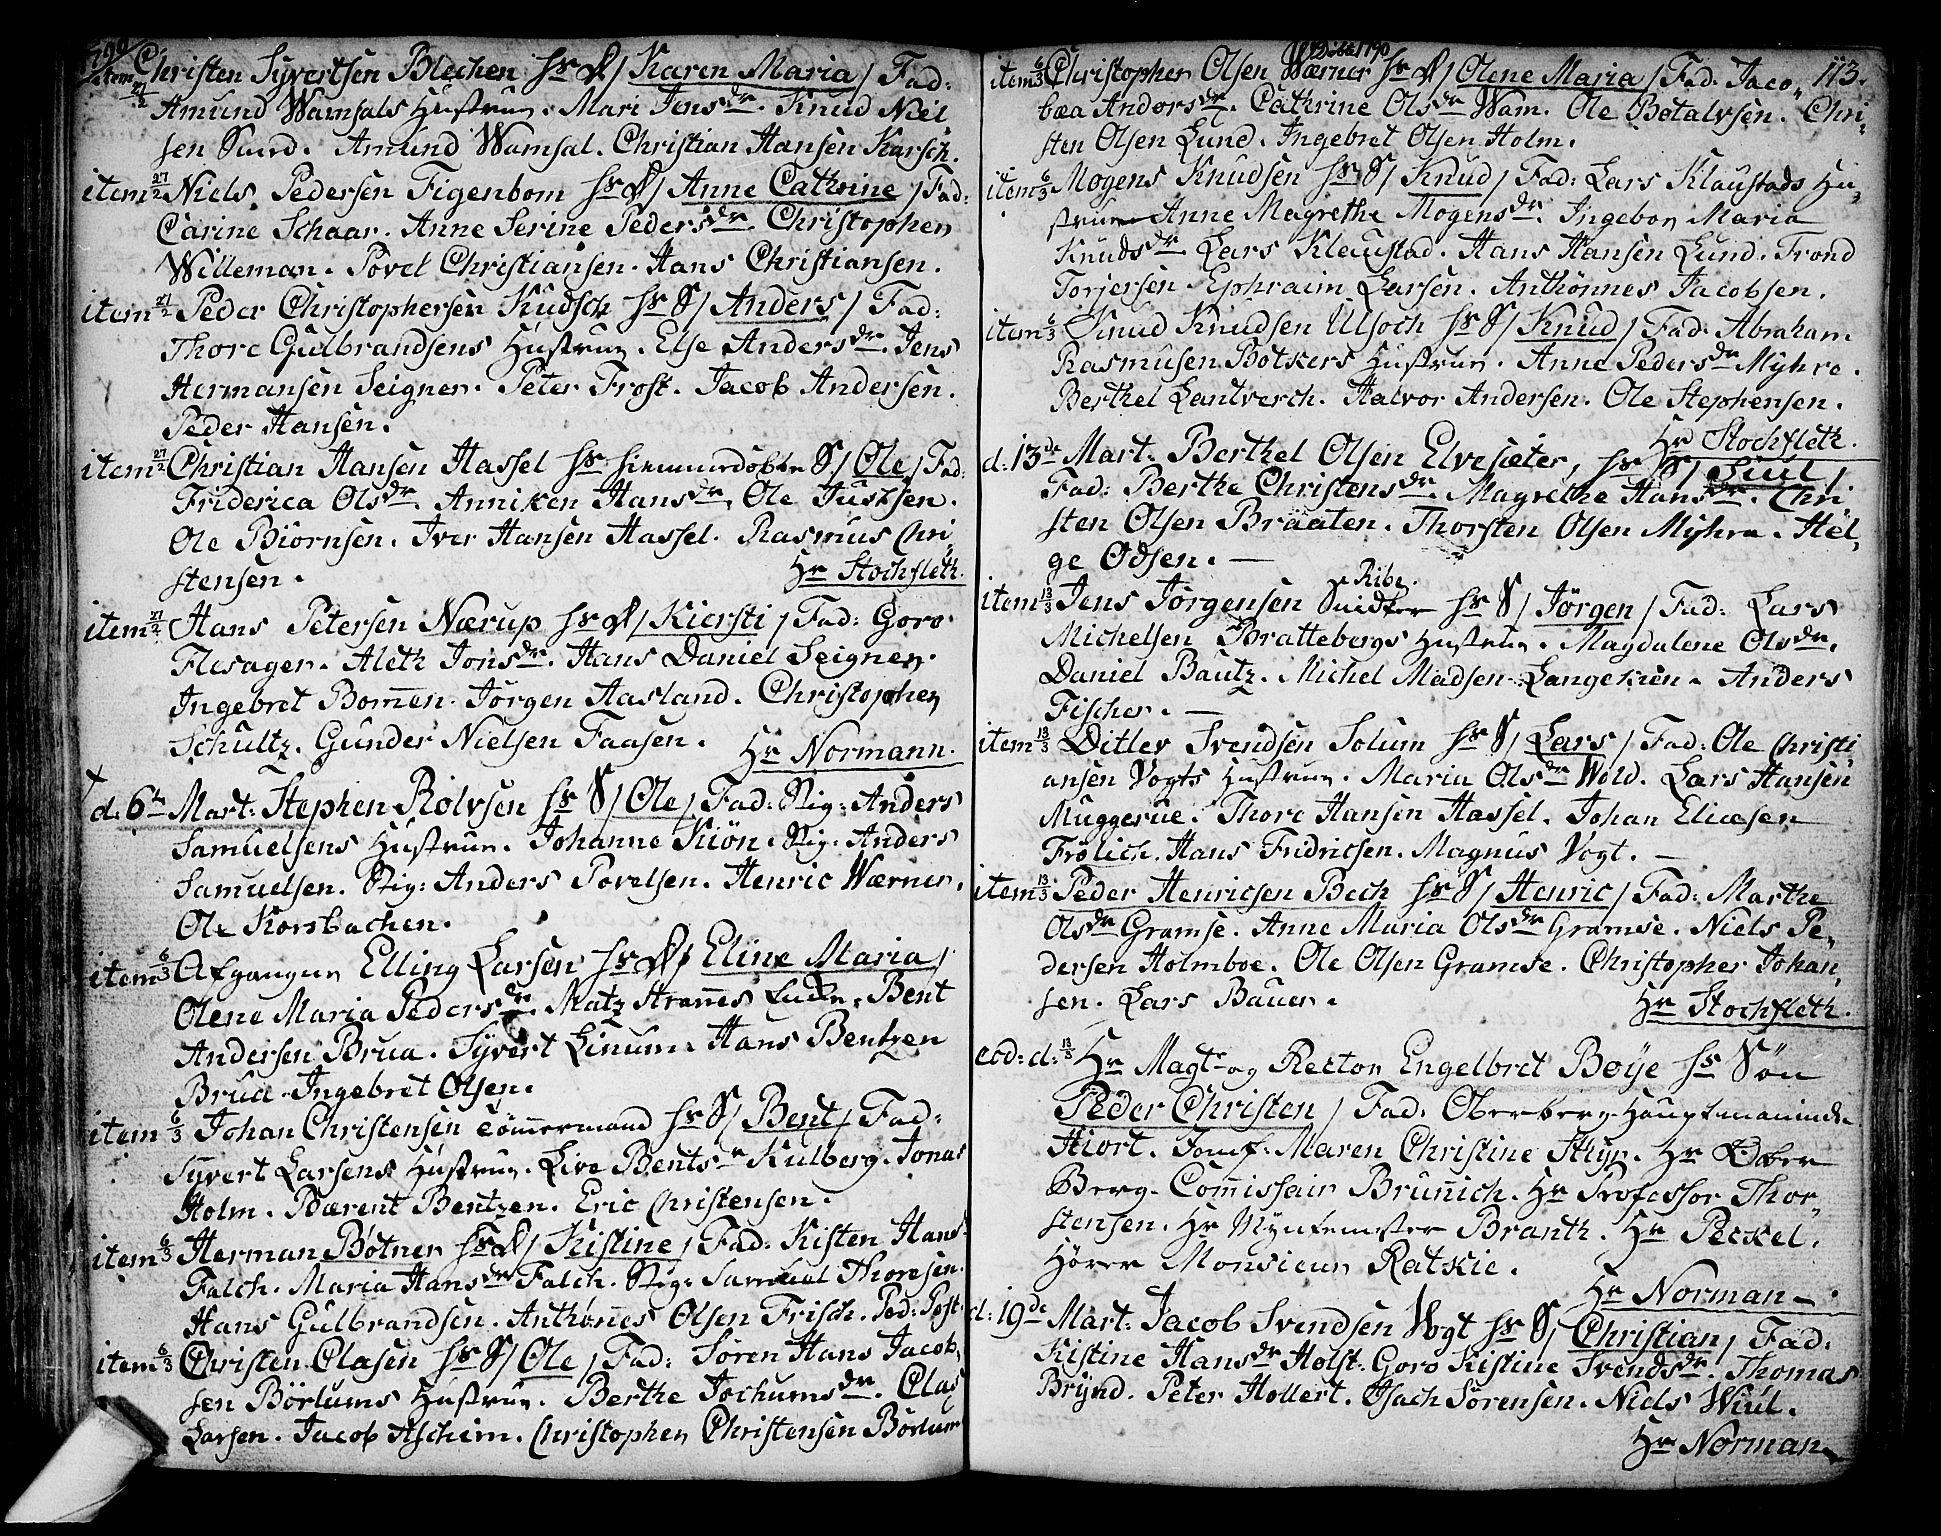 1790
item 27/2 Christen Syvertsen Blechen hs D/ Karen Maria / Fad:
Amund Wamsals Hustrue. Mari Jensdr. Knud Niel
sen Sund. Amund Wamsal. Christian Hansen Karsch.
item 27/2 Niels Pedersen Figenbom hs D/ Anne Cathrine / Fad:
Carine Schaar. Anne Serine Pedersdr. Christopher
Willeman. Povel Christiansen. Hans Christiansen.
item 27/2 Peder Christophersen Kudsch hs S/ Anders / Fad:
Thore Gulbrandsens Hustrue. Else Andersdr. Jens
Hermansen Seigner. Peter Frost. Jacob Andersen.
Peder Hansen.
item 27/2 Christian Hansen Hassel hs hiemmedøbte S/ Ole / Fad:
Friderica Olsdr. Anniken Hansdr. Ole Justsen.
Ole Biørnsen. Iver Hansen Hassel. Rasmus Chri
stensen. Hr Stochfleth.
item 27/2 Hans Petersen Nærup hs D/ Kiersti / Fad: Goro
Flesager. Aleth Jonsdr. Hans Daniel Seigner.
Ingebret Bomen. Jörgen Aasland. Christopher
Schultz. Gunder Nielsen Faasen. Hr Normann.
d: 6te Mart: Stephen Rolvsen hs S/ Ole / Fad: Stig: Anders
Samuelsens Hustrue. Johanne Kiön. Stig: Anders
Samuelsen. Stig: Anders Povelsen. Henric Wærner.
Ole Korsbachen.
item 6/3 Afgangne Elling Larsen hs D/ Eline Maria /
Olene Maria Pedersdr. Matz Strømes Bent
Andersen Brua. Syvert Linum. Hans Bentzen
Brua. Ingebret Olsen.
item 6/3 Johan Christensen Tömmermand hs S/ Bent / Fad:
Syvert Larsens Hustrue. Live Bentsdr Kulberg. Jonas
Holm. Bærent Bentzen. Eric Christensen.
item 6/3 Herman Bøtner hs D/ Kistine / Fad: Kisten Hans
Falch. Maria Hansdr Falch. Stig: Samuel Thoresen.
Hans Gulbrandsen. Anthønes Olsen Frisch. Ped: Post.
item 6/3 Christen Clasen hs S/ Ole / Fad: Sören Hans Jacob,
sen Börlums Hustrue. Berthe Jochumsdr. Clas
Larsen. Jacob Aschim. Christopher Christensen Börlum
1790 113.
item 6/3 Christopher Olsen Wærner hs D/ Olene Maria / Fad: Jaco,
bæa Andorsdr. Cathrine Olsdr Wam. Ole Botalvsen. Chri,
sten Olsen Lund. Ingebret Olsen Holm.
item 6/3 Mogens Knudsen hs S/ Knud / Fad: Lars Klaustads Hu,
strue Anne Magrethe Mogensdr. Ingebor Maria
Knudsdr Lars Klaustad. Hans Hansen Lund. Trond
Torjersen. Ephraim Larsen. Anthönnes Jacobsen.
item 6/3 Knud Knudsen Ulsoch hs S/ Knud / Fad: Abraham
Rasmusen Botkers Hustrue. Anne Pedersdr Myhre.
Berthel Lantverch. Halvor Andersen. Ole Stephensen.
Hr Stochfleth.
d: 13de Mart: Berthel Olsen Elvesæter, hs S/ Siul /
Fad: Berthe Christensdr. Magrethe Hansdr. Chri
sten Olsen Braaten. Thorsten Olsen Myhra. Hel,
ge Odsen. —
item 13/3 Jens Jörgensen Ribe. hs S/ Jörgen / Fad: Lars
Michelsen Brattebergs Hustrue. Magdalene Olsdr.
Daniel Bautz. Michel Madsen Langekien. Anders
Fischer. —
item 13/3 Ditlev Svendsen Solum hs S/ Lars / Fad: Ole Christi
ansen Vogts Hustrue. Maria Olsdr Wold. Lars Hansen
Muggerue. Thore Hansen Hassel. Johan Eliæsen
Frölich. Hans Fridricsen. Magnus Vogt. —
item 13/3 Peder Henricsen Bech hs S/ Henric / Fad: Marthe
Olsdr Gramse. Anne Maria Olsdr Gramse. Niels Pe,
dersen Holmboe. Ole Olsen Gramse. Christopher Johan,
sen. Lars Bauer. Hr Stochfleth.
eod: d: 13/3 Hr Magr og Rector Engelbret Boÿe hs Sön
Peder Christen / Fad: Oberberg Hauptmaninde
Hiort. Jomf. Maren Christine Stüp. Hr Ober
Berg-Comissair Brunich. Hr Professor Thor,
stensen. Hr Myntemester Branth. Hr Peckel.
Hörer Monsieur Ratkie.
Hr Norman.
d: 19de Mart: Jacob Svendsen Vogt hs S/ Christian / Fad:
Kistine Hansdr Holst. Goro Kistine Svendsdr. Thomas
Brynd. Peter Hollert. Isach Sörensen. Niels Wiul.
Hr Norman